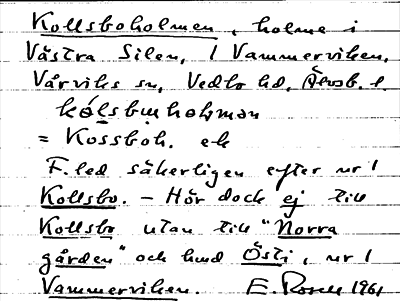 Kollsboholmen, holme i
Västra Silen, / Vammerviken,
Vårviks sn, Vedbo hd, Älvsb. l.
kålsbuholmən
= Kossboh. ek
F.led säkerligen efter nr 1
Kollsbo. – Hör dock ej till
Kollsbo utan till "Norra
gården" och hmd Östi, nr 1
Vammerviken. E. Rosell 1961